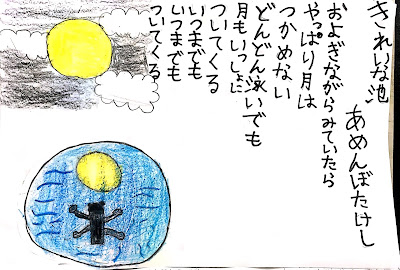 きれいな池
あめんぼたけし
およぎながらみていたら
やっぱり月は
つかめない
どんどん泳いでも
月もいっしょに
ついてくる
いつまでも
いつまでも
ついてくる